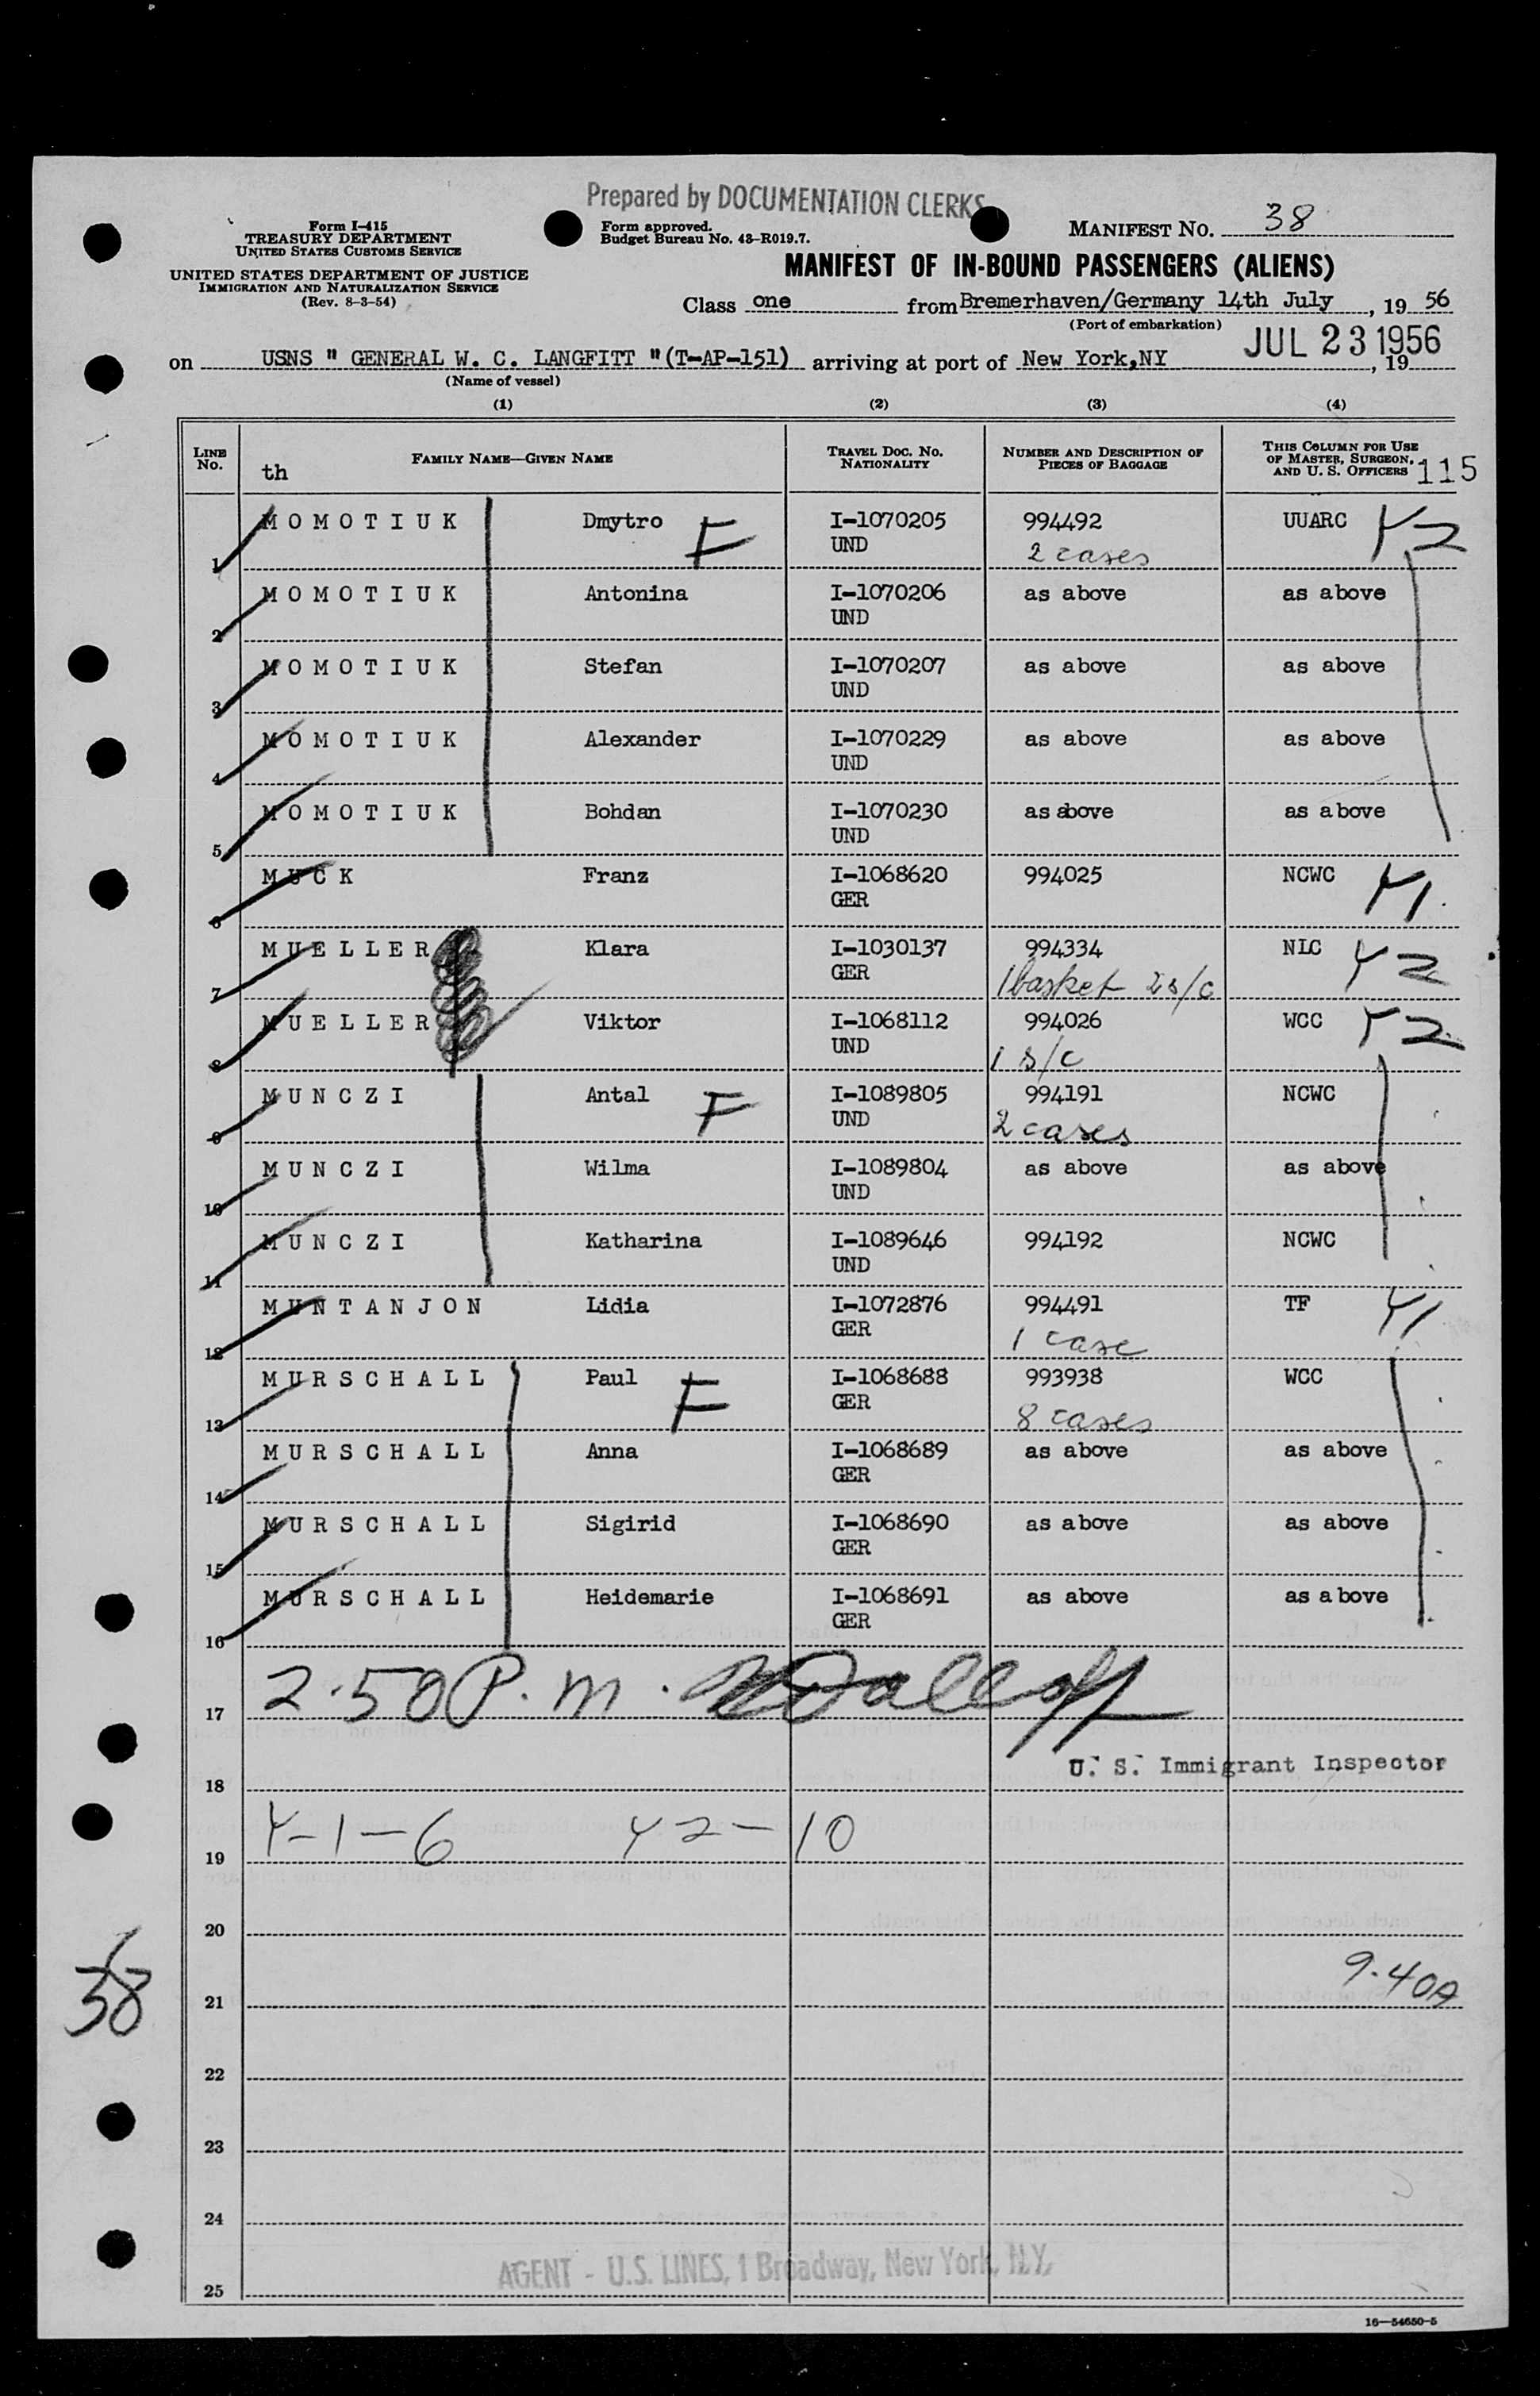 Prepared by DOCUMENTATION CLERKS
Form I-415
TREASURY DEPARTMENT
UNITED STATES CUSTOMS SERVICE
UNITED STATES DEPARTMENT OF JUSTICE
IMMIGRATION AND NATURALIZATION SERVICE
(Rev. 8-3-54)
Form approved.
Budget Bureau No. 43-R019.7.
MANIFEST NO. 38
MANIFEST OF IN-BOUND PASSENGERS (ALIENS)
Class one from Bremerhaven/Germany 14th July, 19 56
(Port of embarkation)
JUL 23 1956
on USNS " GENERAL W. C. LANGFITT "(T-AP-151) arriving at port of New York,NY, 19
(Name of vessel)
(1) (2) (3) (4)
LINE NO. FAMILY NAME—GIVEN NAME TRAVEL DOC. NO. NATIONALITY NUMBER AND DESCRIPTION OF PIECES OF BAGGAGE THIS COLUMN FOR USE OF MASTER, SURGEON, AND U. S. OFFICERS 115
th
1 MOMOTIUK Dmytro F I-1070205 994492 UUARC Y2
UND 2 cases
2 MOMOTIUK Antonina I-1070206 as above as above
UND
3 MOMOTIUK Stefan I-1070207 as above as above
UND
4 MOMOTIUK Alexander I-1070229 as above as above
UND
5 MOMOTIUK Bohdan I-1070230 as above as above
UND
6 MUCK Franz I-1068620 994025 NCWC Y1.
GER
7 MUELLER Klara I-1030137 994334 NLC Y2
GER 1 basket 2 s/c
8 MUELLER Viktor I-1068112 994026 WCC Y2
UND 1 s/c
9 MUNCZI Antal F I-1089805 994191 NCWC
UND 2 cases
10 MUNCZI Wilma I-1089804 as above as above
UND
11 MUNCZI Katharina I-1089646 994192 NCWC
UND
12 MUNTANJON Lidia I-1072876 994491 TF Y1
GER 1 case
13 MURSCHALL Paul F I-1068688 993938 WCC
GER 8 cases
14 MURSCHALL Anna I-1068689 as above as above
GER
15 MURSCHALL Sigirid I-1068690 as above as above
GER
16 MURSCHALL Heidemarie I-1068691 as above as above
GER
17 2.50 P.m.
18 U. S. Immigrant Inspector
19 Y-1-6 Y2-10
20
21 9.40A
38
22
23
24
AGENT - U.S. LINES, 1 Broadway, New York, N.Y.
25
16—54650-5